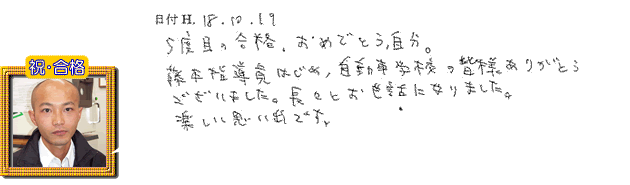 日付 H. 18.10.19
5度目の合格、おめでとう自分。
祝・合格
藤本指導員はじめ、自動車学校の皆様ありがとう
ございました。長々とお世話になりました。
楽しい思い出です。